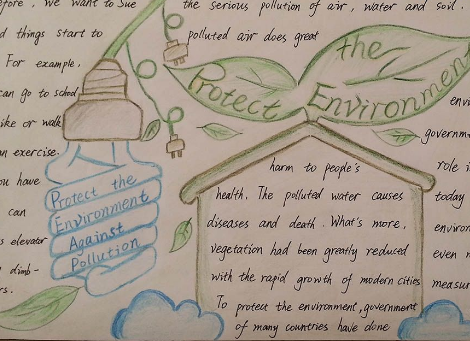 , we want to sue
d things start to
For example,
can go to school
ike or walk
an exercise.
you have
can
s elevator
climb-
rs.
Protect the
Environment
Against
Pollution
the serious pollution of air, water and soil.
polluted air does great
Protect the Environment
harm to people's
health. The polluted water causes
diseases and death. What's more,
vegetation had been greatly reduced
with the rapid growth of modern cities
To protect the environment, government
of many countries have done
envi
governm
role i
today
environ
even m
measur